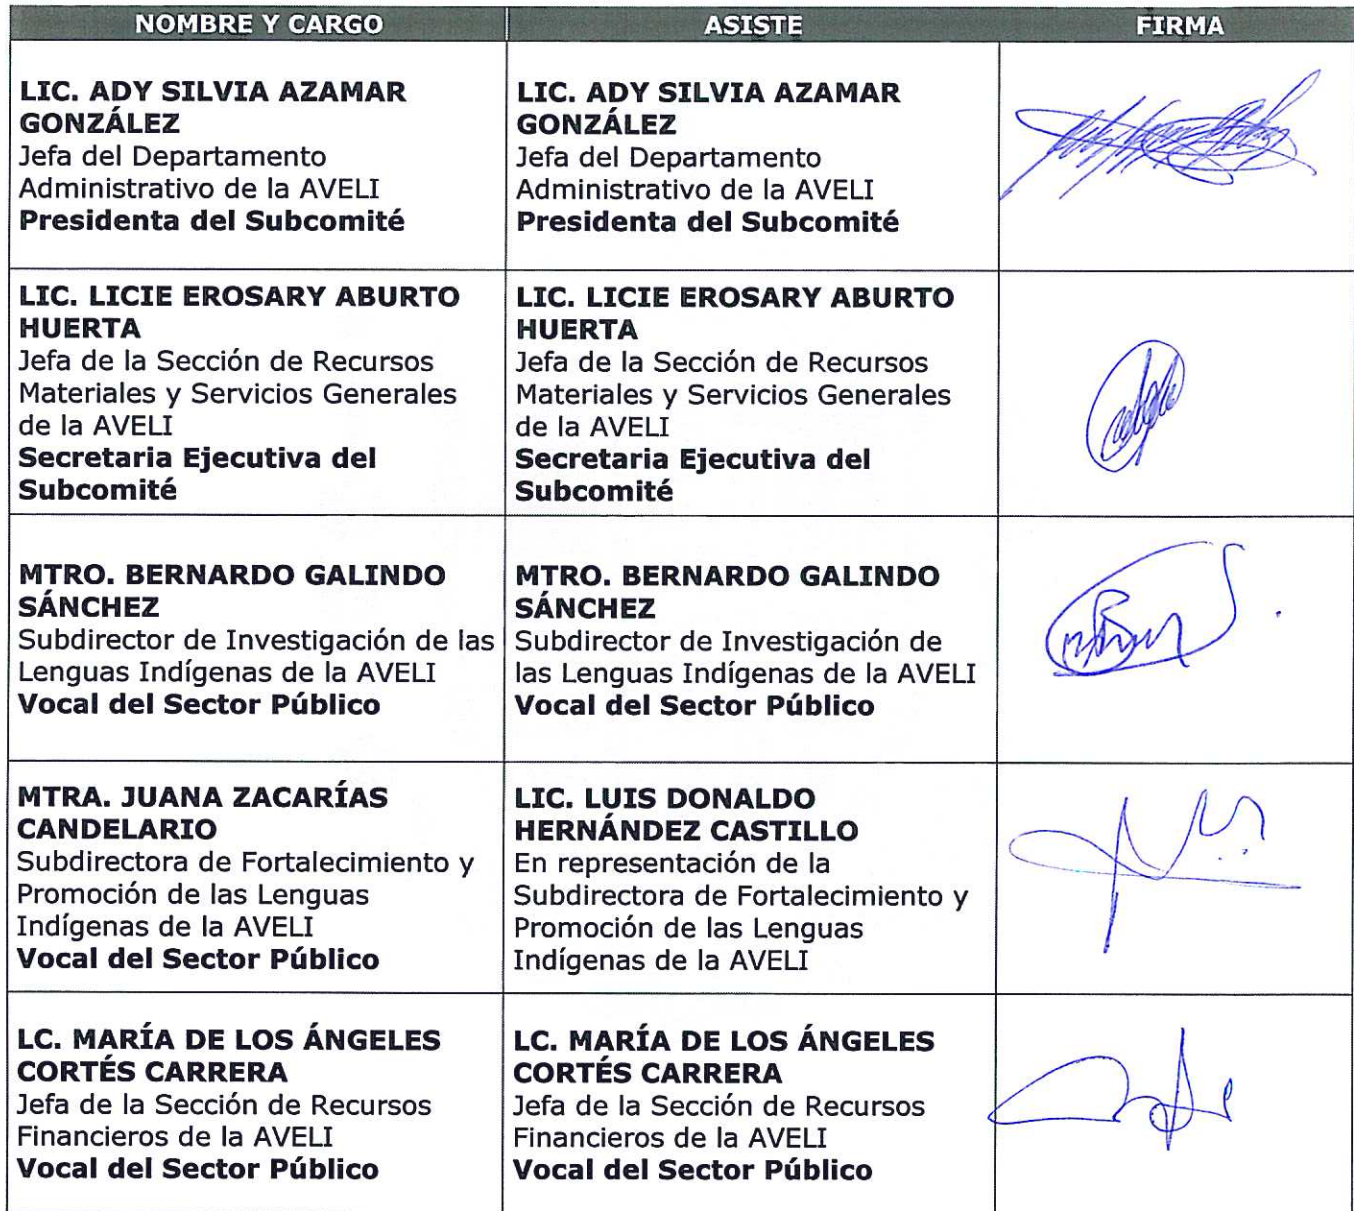 NOMBRE Y CARGO
ASISTE
FIRMA
LIC. ADY SILVIA AZAMAR
GONZÁLEZ
Jefa del Departamento
Administrativo de la AVELI
Presidenta del Subcomité
LIC. ADY SILVIA AZAMAR
GONZÁLEZ
Jefa del Departamento
Administrativo de la AVELI
Presidenta del Subcomité
LIC. LICIE EROSARY ABURTO
HUERTA
Jefa de la Sección de Recursos
Materiales y Servicios Generales
de la AVELI
Secretaria Ejecutiva del
Subcomité
LIC. LICIE EROSARY ABURTO
HUERTA
Jefa de la Sección de Recursos
Materiales y Servicios Generales
de la AVELI
Secretaria Ejecutiva del
Subcomité
MTRO. BERNARDO GALINDO
SÁNCHEZ
Subdirector de Investigación de las
Lenguas Indígenas de la AVELI
Vocal del Sector Público
MTRO. BERNARDO GALINDO
SÁNCHEZ
Subdirector de Investigación de
las Lenguas Indígenas de la AVELI
Vocal del Sector Público
MTRA. JUANA ZACARÍAS
CANDELARIO
Subdirectora de Fortalecimiento y
Promoción de las Lenguas
Indígenas de la AVELI
Vocal del Sector Público
LIC. LUIS DONALDO
HERNÁNDEZ CASTILLO
En representación de la
Subdirectora de Fortalecimiento y
Promoción de las Lenguas
Indígenas de la AVELI
LC. MARÍA DE LOS ÁNGELES
CORTÉS CARRERA
Jefa de la Sección de Recursos
Financieros de la AVELI
Vocal del Sector Público
LC. MARÍA DE LOS ÁNGELES
CORTÉS CARRERA
Jefa de la Sección de Recursos
Financieros de la AVELI
Vocal del Sector Público